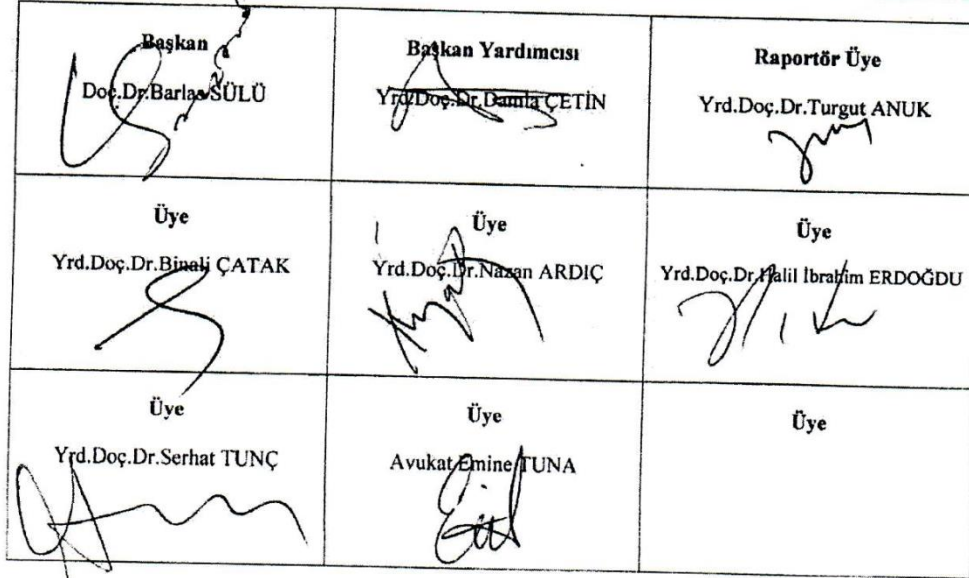 Başkan
Doç.Dr.Barlas SÜLÜ
Başkan Yardımcısı
Yrd.Doç.Dr.Damla ÇETİN
Raportör Üye
Yrd.Doç.Dr.Turgut ANUK
Üye
Yrd.Doç.Dr.Binali ÇATAK
Üye
Yrd.Doç.Dr.Nazan ARDIÇ
Üye
Yrd.Doç.Dr.Halil İbrahim ERDOĞDU
Üye
Yrd.Doç.Dr.Serhat TUNÇ
Üye
Avukat Emine TUNA
Üye